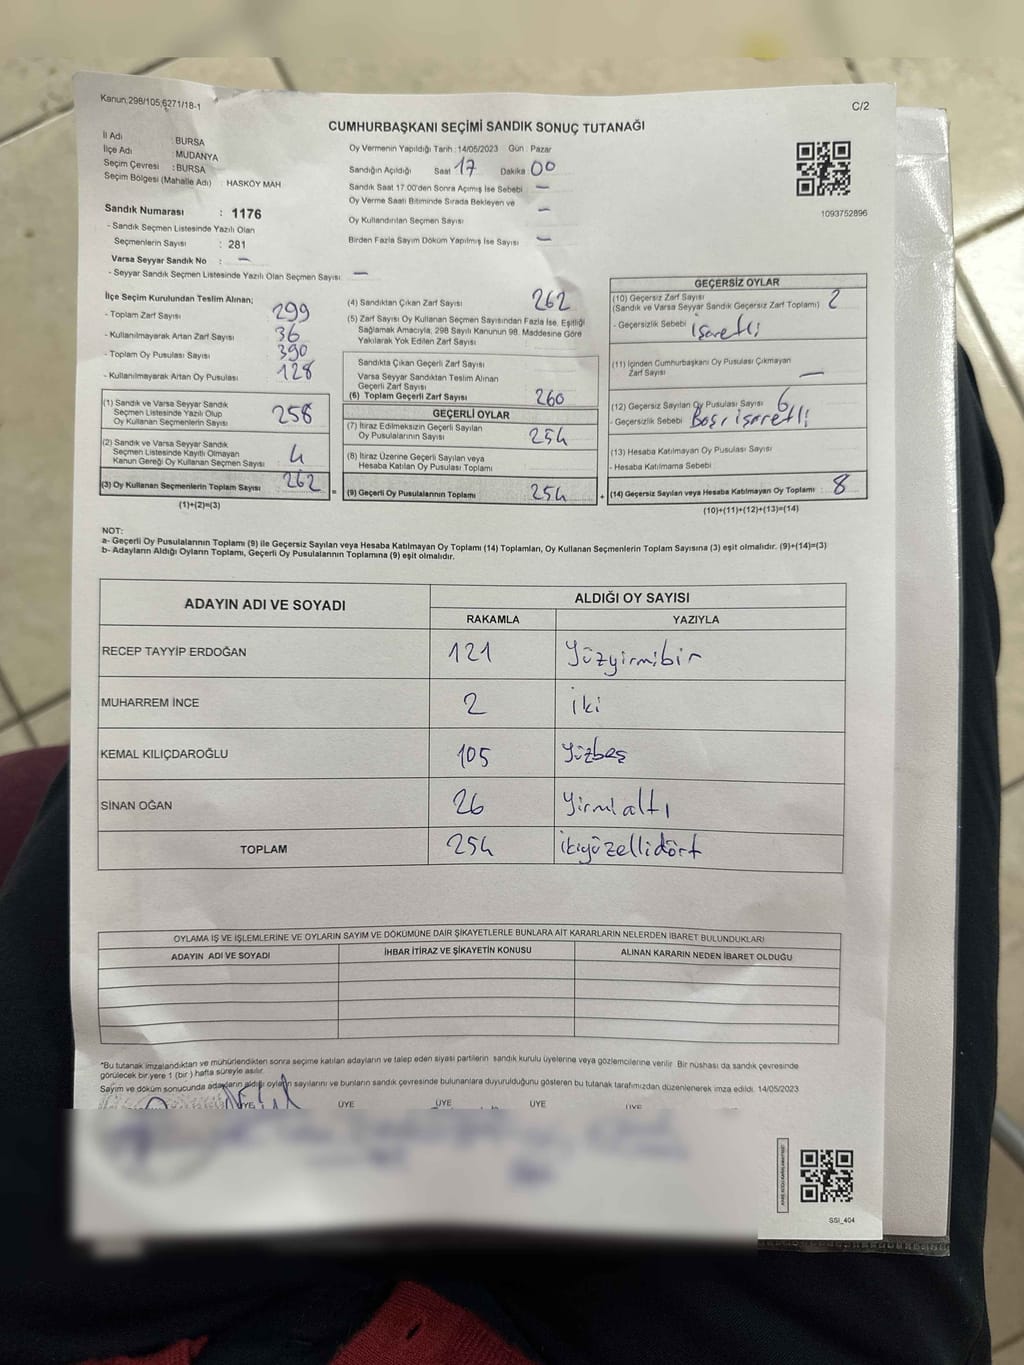 Kanun;298/105;6271/18-1
C/2
CUMHURBAŞKANI SEÇİMİ SANDIK SONUÇ TUTANAĞI
İl Adı : BURSA
İlçe Adı : MUDANYA
Seçim Çevresi : BURSA
Seçim Bölgesi (Mahalle Adı) : HASKÖY MAH
Sandık Numarası : 1176
- Sandık Seçmen Listesinde Yazılı Olan
Seçmenlerin Sayısı : 281
Varsa Seyyar Sandık No : —
- Seyyar Sandık Seçmen Listesinde Yazılı Olan Seçmen Sayısı : —
Oy Vermenin Yapıldığı Tarih : 14/05/2023 Gün : Pazar
Sandığın Açıldığı Saat 17 Dakika : 00
Sandık Saat 17.00'den Sonra Açımış İse Sebebi : —
Oy Verme Saati Bitiminde Sırada Bekleyen ve
Oy Kullandırılan Seçmen Sayısı —
Birden Fazla Sayım Döküm Yapılmış İse Sayısı : —
1093752896
İlçe Seçim Kurulundan Teslim Alınan;
- Toplam Zarf Sayısı 299
- Kullanılmayarak Artan Zarf Sayısı 36
- Toplam Oy Pusulası Sayısı 390
- Kullanılmayarak Artan Oy Pusulası 128
(1) Sandık ve Varsa Seyyar Sandık
Seçmen Listesinde Yazılı Olup
Oy Kullanan Seçmenlerin Sayısı 258
(2) Sandık ve Varsa Seyyar Sandık
Seçmen Listesinde Kayıtlı Olmayan
Kanun Gereği Oy Kullanan Seçmen Sayısı 4
(3) Oy Kullanan Seçmenlerin Toplam Sayısı 262
(1)+(2)=(3)
(4) Sandıktan Çıkan Zarf Sayısı 262
(5) Zarf Sayısı Oy Kullanan Seçmen Sayısından Fazla İse, Eşitliği
Sağlamak Amacıyla; 298 Sayılı Kanunun 98. Maddesine Göre
Yakılarak Yok Edilen Zarf Sayısı
Sandıkta Çıkan Geçerli Zarf Sayısı
Varsa Seyyar Sandıktan Teslim Alınan
Geçerli Zarf Sayısı
(6) Toplam Geçerli Zarf Sayısı 260
GEÇERLİ OYLAR
(7) İtiraz Edilmeksizin Geçerli Sayılan
Oy Pusulalarının Sayısı 254
(8) İtiraz Üzerine Geçerli Sayılan veya
Hesaba Katılan Oy Pusulası Toplamı
= (9) Geçerli Oy Pusulalarının Toplamı 254 +
GEÇERSİZ OYLAR
(10) Geçersiz Zarf Sayısı
(Sandık ve Varsa Seyyar Sandık Geçersiz Zarf Toplamı) 2
- Geçersizlik Sebebi işaretli
(11) İçinden Cumhurbaşkanı Oy Pusulası Çıkmayan
Zarf Sayısı —
(12) Geçersiz Sayılan Oy Pusulası Sayısı 6
- Geçersizlik Sebebi Boş, işaretli
(13) Hesaba Katılmayan Oy Pusulası Sayısı
- Hesaba Katılmama Sebebi
(14) Geçersiz Sayılan veya Hesaba Katılmayan Oy Toplamı : 8
(10)+(11)+(12)+(13)=(14)
NOT:
a- Geçerli Oy Pusulalarının Toplamı (9) ile Geçersiz Sayılan veya Hesaba Katılmayan Oy Toplamı (14) Toplamları, Oy Kullanan Seçmenlerin Toplam Sayısına (3) eşit olmalıdır. (9)+(14)=(3)
b- Adayların Aldığı Oyların Toplamı, Geçerli Oy Pusulalarının Toplamına (9) eşit olmalıdır.
ADAYIN ADI VE SOYADI
ALDIĞI OY SAYISI
RAKAMLA YAZIYLA
RECEP TAYYİP ERDOĞAN 121 Yüzyirmibir
MUHARREM İNCE 2 iki
KEMAL KILIÇDAROĞLU 105 Yüzbeş
SİNAN OĞAN 26 Yirmi altı
TOPLAM 254 ikiyüzellidört
OYLAMA İŞ VE İŞLEMLERİNE VE OYLARIN SAYIM VE DÖKÜMÜNE DAİR ŞİKAYETLERLE BUNLARA AİT KARARLARIN NELERDEN İBARET BULUNDUKLARI
ADAYIN ADI VE SOYADI İHBAR İTİRAZ VE ŞİKAYETİN KONUSU ALINAN KARARIN NEDEN İBARET OLDUĞU
*Bu tutanak imzalandıktan ve mühürlendikten sonra seçime katılan adayların ve talep eden siyasi partilerin sandık kurulu üyelerine veya gözlemcilerine verilir. Bir nüshası da sandık çevresinde
görülecek bir yere 1 (bir ) hafta süreyle asılır.
Sayım ve döküm sonucunda adayların aldığı oyların sayılarını ve bunların sandık çevresinde bulunanlara duyurulduğunu gösteren bu tutanak tarafımızdan düzenlenerek imza edildi. 14/05/2023
ÜYE ÜYE ÜYE ÜYE ÜYE
SSİ_404